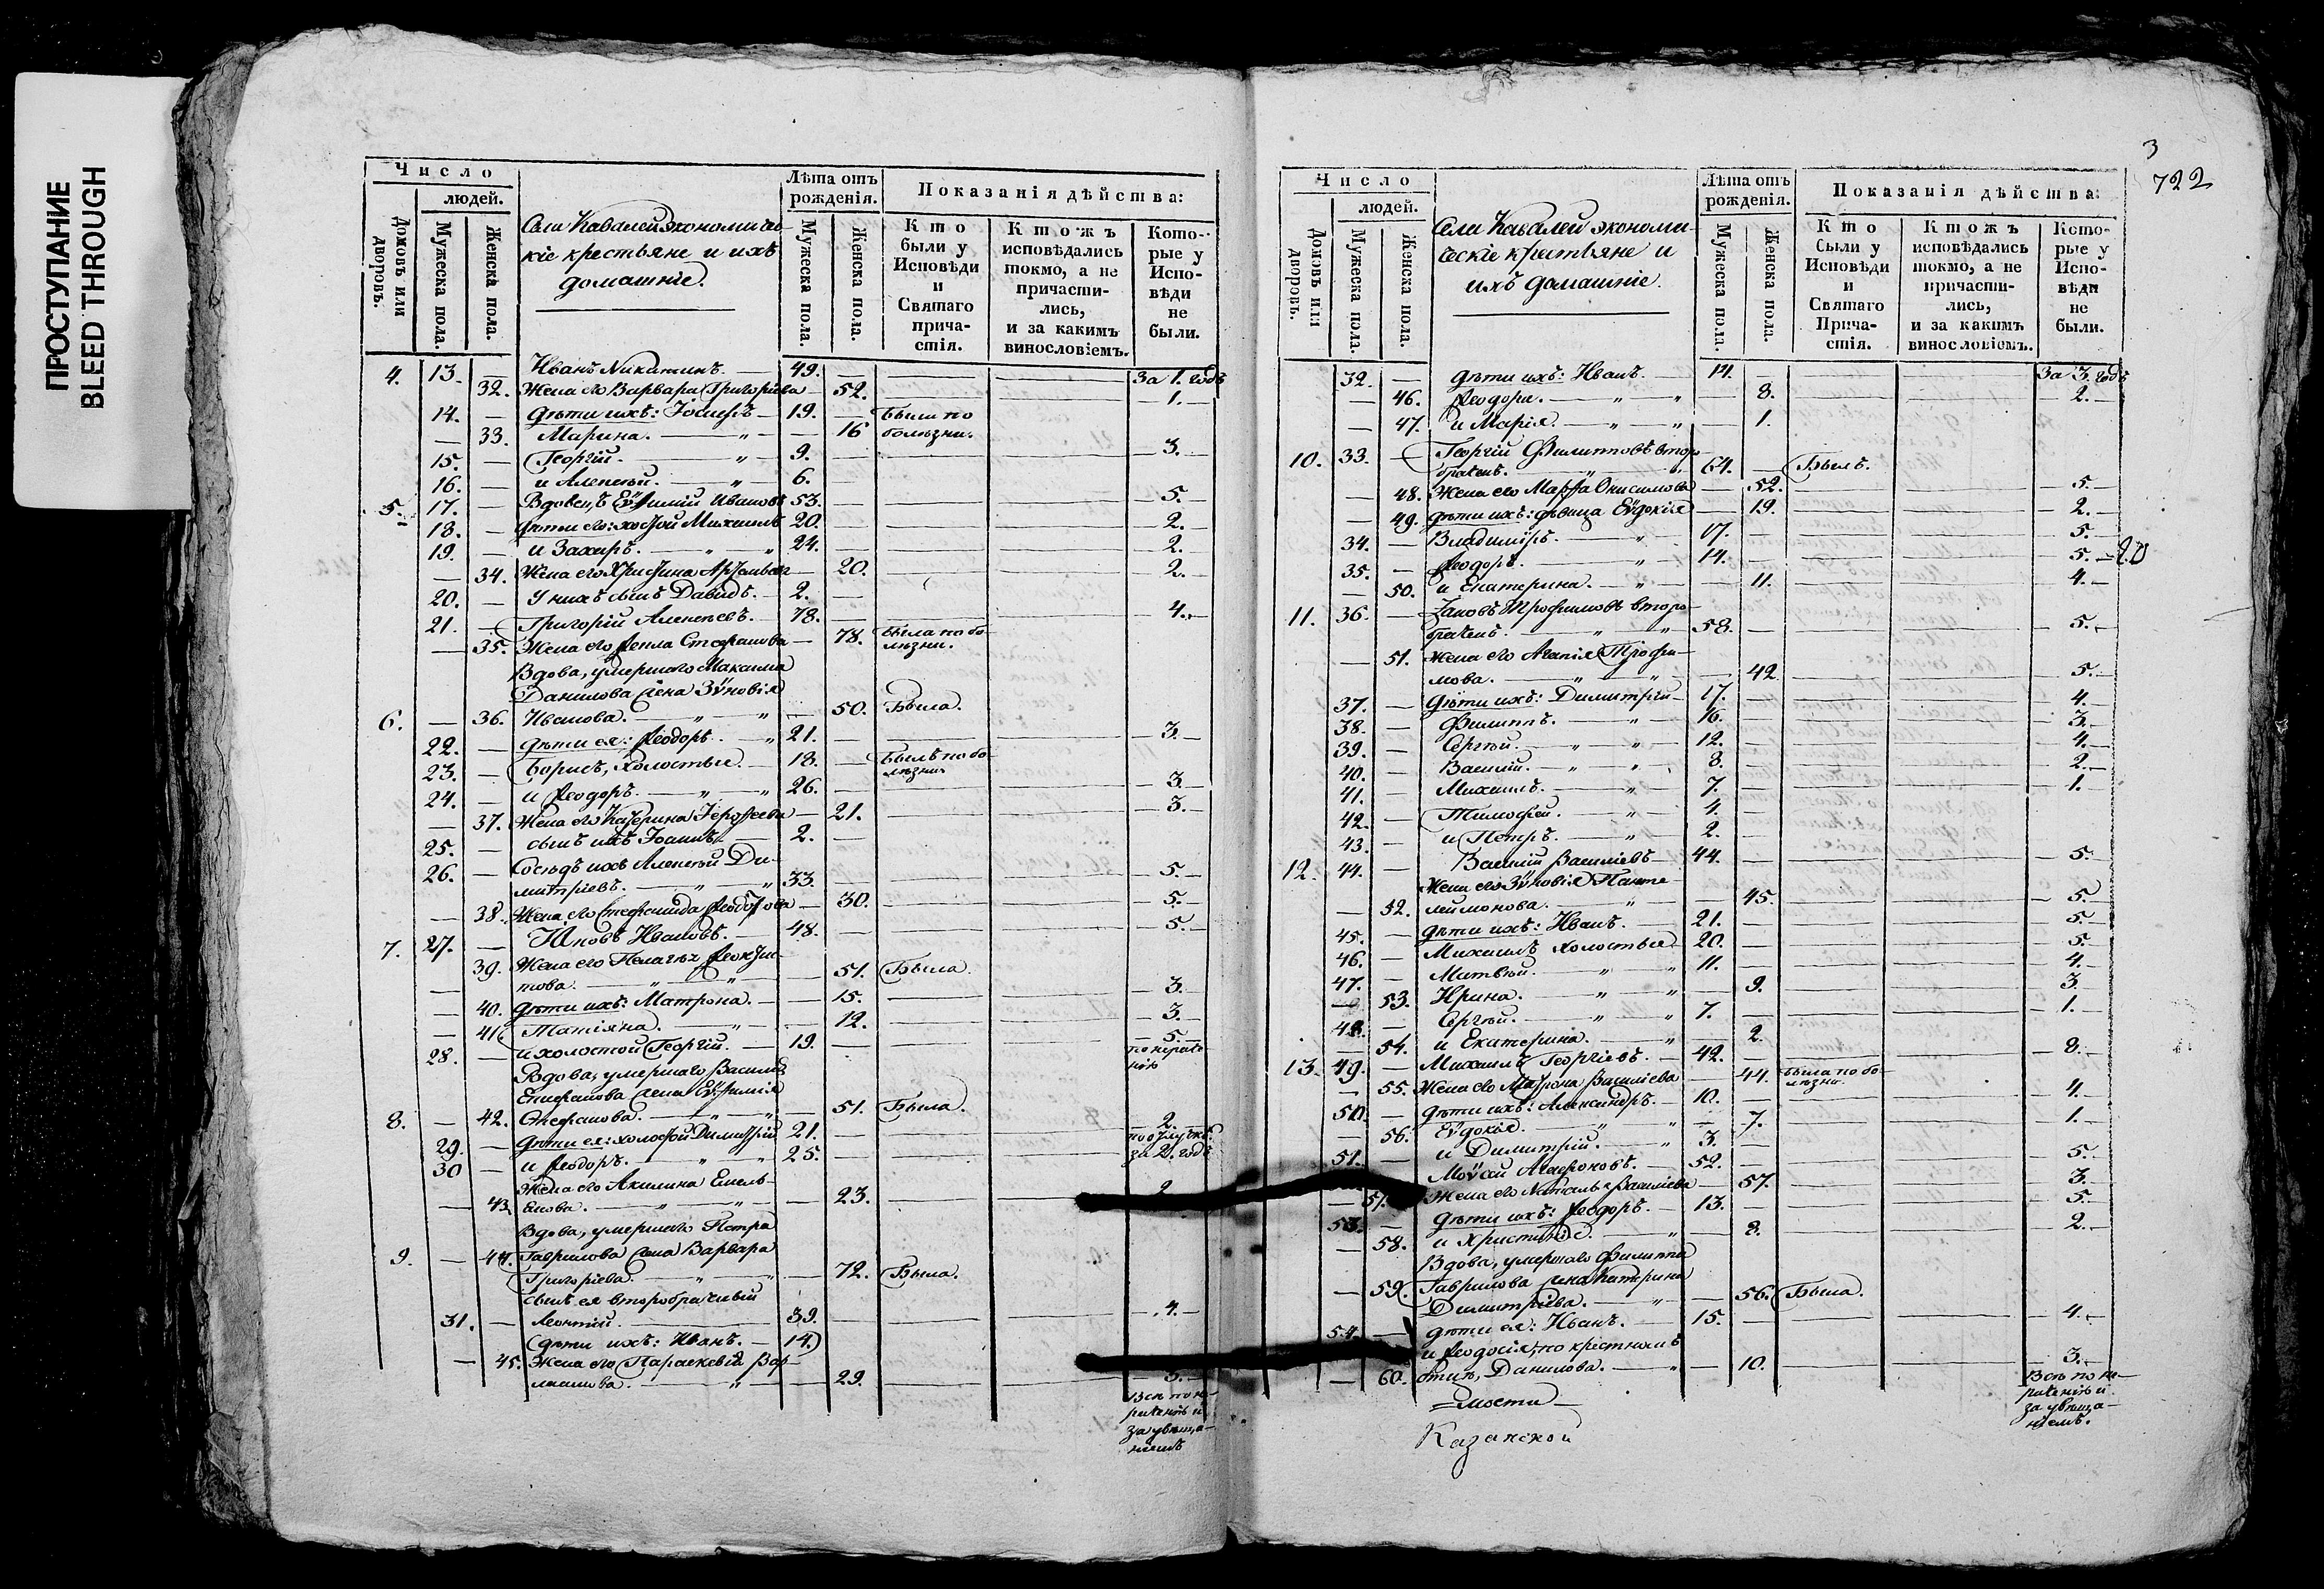 ПРОСТУПАНИЕ
BLEED THROUGH
Число
людей.
Домовъ или дворовъ.
Мужеска пола.
Женска пола.
Села Кавалей экономиче-
скіе крестьяне и ихъ
домашніе.
Лѣта отъ рожденія.
Мужеска пола.
Женска пола.
Показанія дѣйства:
Кто были у Исповѣди и Святаго причастія.
Ктожъ исповѣдались токмо, а не причастились, и за какимъ винословіемъ.
Которые у Исповѣди не были.
4. 13. — Иванъ Никитинъ. — 49. — За 1. годъ
32. Жена его Варвара Григорьева 52. — 1.
14. — Дѣти ихъ: Іосифъ — 19. — Были по
— 33. Марина. — „ — 16 болѣзни.
15. — Георгій. — „ — 9. — 3.
16. — и Алексѣй. — „ 6.
5. 17. — Вдовецъ Еѵѳимій Ивановъ 53. — 5.
18. — Дѣти его: холостой Михаилъ 20. — 2.
19. — и Захаръ. — „ „ 24. — 2.
— 34. Жена его Христина — 20. — 2.
20. — У нихъ сынъ Давидъ. — 2. —
21. — Григорій Алексѣевъ. — 78. — 4.
— 35. Жена его Ѳекла Стефанова — 78. Была по бо-
лѣзни.
Вдова, умершаго Максима
Данилова жена Зѵновія
6. — 36. Иванова. — „ — „ — 50. Была.
22. — дѣти ея: Ѳеодоръ. — „ 21. — 3.
23. — Борисъ, холостые. — 18. — Былъ по бо-
лѣзни.
24. — и Ѳеодоръ. — „ — „ 26. — 3.
— 37. Жена его Катерина — 21. — 3.
25. — сынъ ихъ Іоаннъ. — 2. —
26. — Сосѣдъ ихъ Алексѣй Ди-
митріевъ. — „ — „ 33. — 5.
— 38. Жена его Стефанида — 30. — 5.
7. 27. — Яковъ Ивановъ. — 48. — 5.
39. Жена его Пелагея
това. — „ — „ — 51. Была.
— 40. дѣти ихъ: Матрона. — 15. — 3.
— 41. Татіяна. — „ — 12. — 3.
28. — и холостой Георгій. — 19. — 5.
по нераче
нію
Вдова, умершаго Василія
жена Еѵѳимія
8. — 42. Стефанова. — „ — „ — 51. Была.
29. — Дѣти ея: холостой Димитрій 21. — 2.
30 — и Ѳеодоръ. — „ „ 25. — по отлучкѣ
за 2. годъ
Жена его Акилина Емель-
— 43. янова. — „ — „ — 23. — 2
Вдова, умершаго Петра
9. — 44. Гаврилова жена Варвара
Григорьева. — „ — „ — 72. Была.
сынъ ея второбрачный
31. — Леонтій. — 39. — 4.
(дѣти ихъ: Иванъ. — 14.)
— 45. Жена его Параскевія
— „ — 29. — 3.
Всѣ по не-
раченію и
за увѣща-
ніемъ
3
722
Число
людей.
Домовъ или дворовъ.
Мужеска пола.
Женска пола.
Села Кавалей экономи-
ческіе крестьяне и
ихъ домашніе.
Лѣта отъ рожденія.
Мужеска пола.
Женска пола.
Показанія дѣйства:
Кто были у Исповѣди и Святаго Причастія.
Ктожъ исповѣдались токмо, а не причастились, и за какимъ винословіемъ.
Которые у Исповѣди не были.
32. — Дѣти ихъ: Иванъ. — 14. — За 3. годъ
— 46. Ѳеодора. — „ — „ — 8. — 2.
— 47. и Марія. — „ — „ — 1.
10. 33. — Георгій Филипповъ втор
браченъ. — „ — „ 64. — Былъ.
— 48. Жена его Марѳа Онисимова — 52. — 5.
— 49. Дѣти ихъ: дѣвица Еѵдокія — 19. — 2.
34. — Владиміръ. — „ — 17. — 5.
35. — Ѳеодоръ. — „ — 14. — 5. — 20
— 50. и Екатерина. — „ — 11. — 4.
11. 36. — Іаковъ Трофимовъ второ
браченъ. — „ — „ 58. — 5.
— 51. Жена его Агапія Трофи-
мова. — „ — „ — 42 — 5.
37. — Дѣти ихъ: Димитрій — 17. — 4.
38. — Филиппъ. — „ — 16. — 3.
39. — Сергѣй. — „ — „ 12. — 4.
40. — Василій. — „ — „ 8. — 2.
41. — Михаилъ. — „ — 7. — 1.
42. — Тимоѳей. — „ — 4. —
43. — и Петръ. — „ — 2. —
12. 44. — Василій Васильевъ — 44. — 5.
Жена его Зѵновія Панте-
— 52. леймонова. — „ — 45. — 5.
45. — Дѣти ихъ: Иванъ. — 21. — 5.
46. — Михаилъ холостые — 20. — 5.
47. — Матвѣй. — „ — „ 11. — 4.
— 53. Ирина. — „ — „ — 9. — 3.
48. — Сергѣй. — „ — „ 7. — 1.
54. и Екатерина. — „ — 2.
13. 49. — Михаилъ Георгіевъ. — 42. — 8.
— 55. Жена его Матрона Васильева — 44. Была по бо-
лѣзни.
50. — Дѣти ихъ: Александръ. — 10. — 4.
— 56. Еѵдокія. — „ — „ — 7. — 1.
51. — и Димитрій. — „ 3. —
Моѵсей Агафоновъ. — 52. — 5.
— 57. Жена его Наталья Васильева — 57. — 3.
53. — Дѣти ихъ: Ѳеодоръ. — 13. — 5.
— 58. и Христина. — „ — 8. — 2.
Вдова, умершаго Филиппа
— 59. Гаврилова жена Катерина
Димитріева. — „ — 56. Была.
54. — дѣти ея: Иванъ. — 15. — 4.
и Ѳеодосія, по крестномъ
— 60. отцѣ, Данилова. — „ — 10. — 3.
Всѣ по не-
раченію и
за увѣща-
ніемъ.
=мости
Казанской